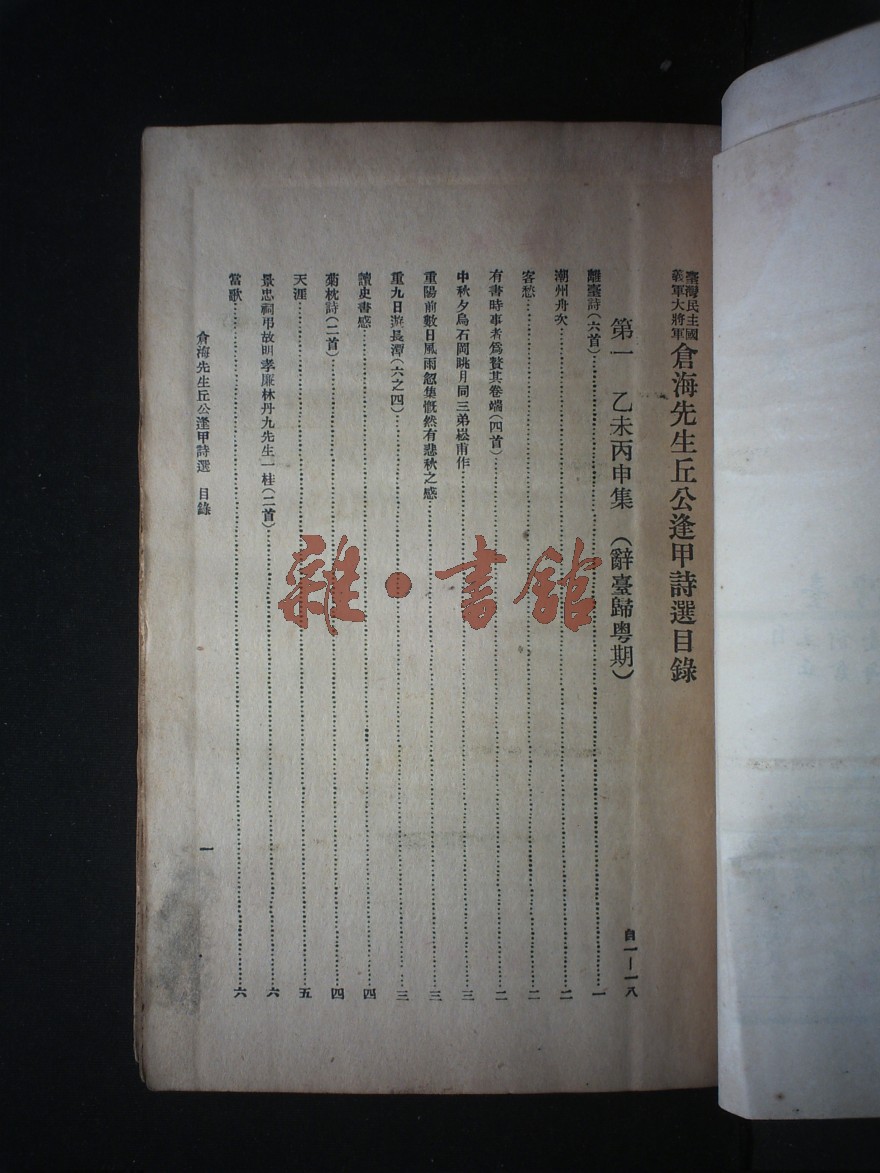 臺灣民主國
義軍大將軍
倉海先生丘公逢甲詩選目錄
第一 乙未丙申集 (辭臺歸粤期) 自一—一八
離臺詩(六首)……一
潮州舟次……二
客愁……二
有書時事者爲贅其卷端(四首)……二
中秋夕烏石岡眺月同三弟崧甫作……三
重陽前數日風雨忽集慨然有悲秋之感……三
重九日遊長潭(六之四)……三
讀史書感……四
菊枕詩(二首)……四
天涯……五
景忠祠弔故明孝廉林丹九先生一桂(二首)……六
當歌……六
倉海先生丘公逢甲詩選 目錄 一
雜·書館